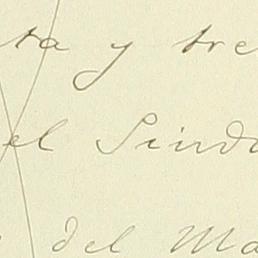 ta y tre
el Sindo
del Ma